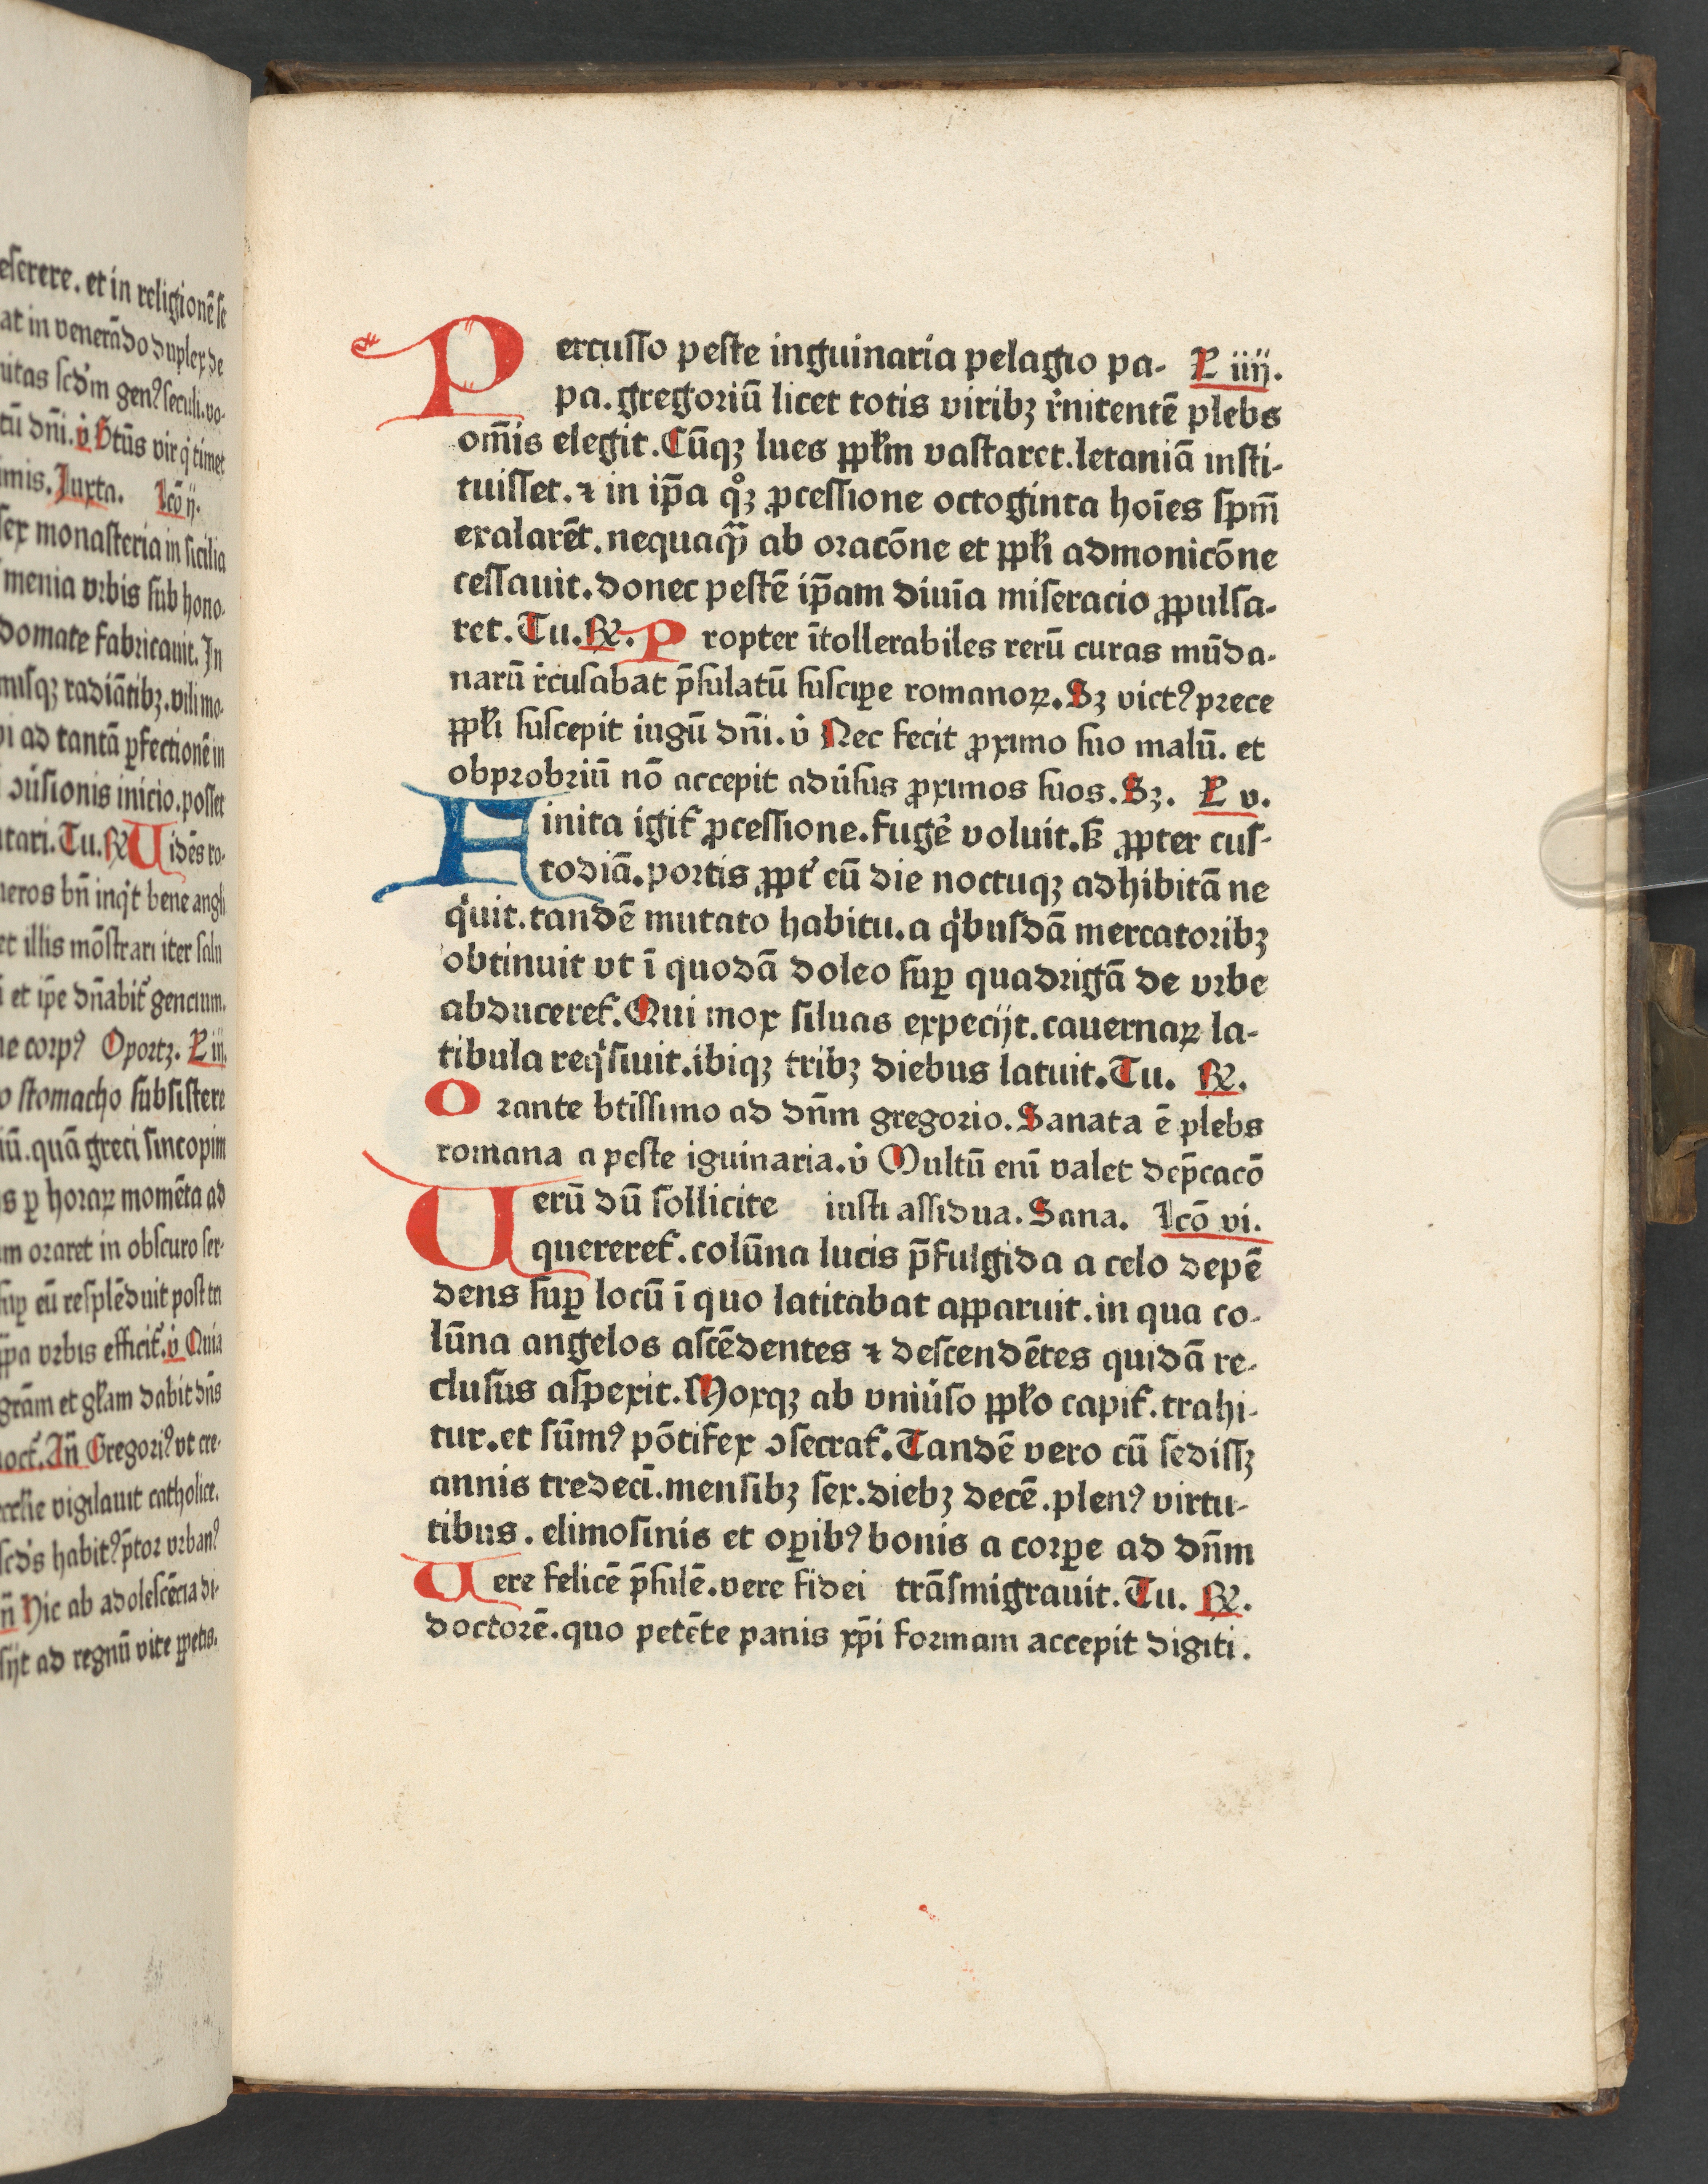 eserere. et in religionē se
at in venerādo duplex de
nitas scd'm genꝰ seculi. vo-
tū dn̄i. v̇ Btūs vir q̇ timet
imis. Iuxta. Lcō ij.
sex monasteria in sicilia
menia vrbis sub hono-
domate fabricauit. In
misqꝫ radiātibꝫ. vili mo-
pi ad tantā ꝑfectionē in
ꝯuẜsionis inicio. posset
tari. Tu. R̷ Uidēs ro-
neros bn̄ inqͥt bene angli
et illis mōstrari iter salu
et ip̄e dn̄abit᷑ gencium.
ne corpꝰ Oportꝫ. L iij.
o stomacho subsistere
iū. quā greci sincopim
s ꝑ horaꝝ momēta ad
m oraret in obscuro ser-
suꝑ eū resplēduit post tn
ꝑpa vrbis efficit᷑. v̇ Quia
grām et gl̄am dabit dn̄s
noct᷑. An̄ Gregoriꝰ vt cre-
eccl̄ie vigilauit catholice.
scd's habitꝰ p̄tor vrbanꝰ
n̄ Hic ab adolescēcia di-
sijt ad regnū vite ꝑpetis.
Percusso peste inguinaria pelagio pa- L iiij.
pa. gregoriū licet totis viribꝫ r̓nitentē plebs
om̄is elegit. Cūqꝫ lues ppl̄m vastaret. letaniā insti-
tuisset. ⁊ in ip̄a qͦꝫ ꝓcessione octoginta hoīes sp̄m
exalarēt. nequaqͣꝫ ab oracōne et ppl̄i admonicōne
cessauit. donec pestē ip̄am diuīa miseracio ꝓpulsa-
ret. Tu. R̷. Propter ītollerabiles rerū curas mūda-
narū r̓cusabat p̄sulatū suscipe romanoꝝ. Sꝫ victꝰ prece
ppl̄i suscepit iugū dn̄i. v̇ Nec fecit ꝓximo suo malū. et
obprobriū nō accepit aduẜsus ꝓximos suos. Sꝫ. L v.
Finita igit᷑ ꝓcessione. fuge᷑ voluit. sꝫ ꝓpter cus-
todiā. portis ꝓpt᷑ eū die noctuqꝫ adhibitā ne
qͥuit. tandē mutato habitu. a qͥbusdā mercatoribꝫ
obtinuit vt ī quodā doleo suꝑ quadrigā de vrbe
abduceret᷑. Qui mox siluas expecijt. cauernaꝝ la-
tibula reqͥsiuit. ibiqꝫ tribꝫ diebus latuit. Tu. R̷.
Orante btīssimo ad dn̄m gregorio. Sanata ē plebs
romana a peste iguinaria. v̇ Multū enī valet dep̄cacō
Uerū dū sollicite iusti assidua. Sana. Lcō vi.
quereret᷑. colūna lucis p̄fulgida a celo depē
dens suꝑ locū ī quo latitabat apparuit. in qua co-
lūna angelos ascēdentes ⁊ descendētes quidā re-
clusus aspexit. Moxqꝫ ab vniuẜso ppl̄o capit᷑. trahi-
tur. et sūmꝰ pōtifex ꝯsecrat᷑. Tandē vero cū sedissꝫ
annis tredecī. mensibꝫ sex. diebꝫ decē. plenꝰ virtu-
tibus. elimosinis et oꝑibꝰ bonis a corꝑe ad dn̄m
Uere felicē p̄sulē. vere fidei trāsmigrauit. Tu. R̷.
doctorē. quo petēte panis xp̄i formam accepit digiti.